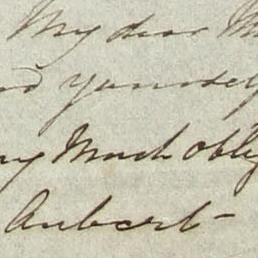 My dear M
nd yourself
ny Much oblig
Aubert-